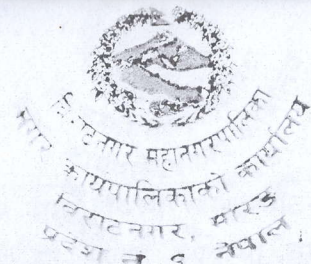 विराटनगर महानगरपालिका
नगर कार्यपालिकाको कार्यालय
विराटनगर, मोरङ
प्रदेश नं. १ नेपाल